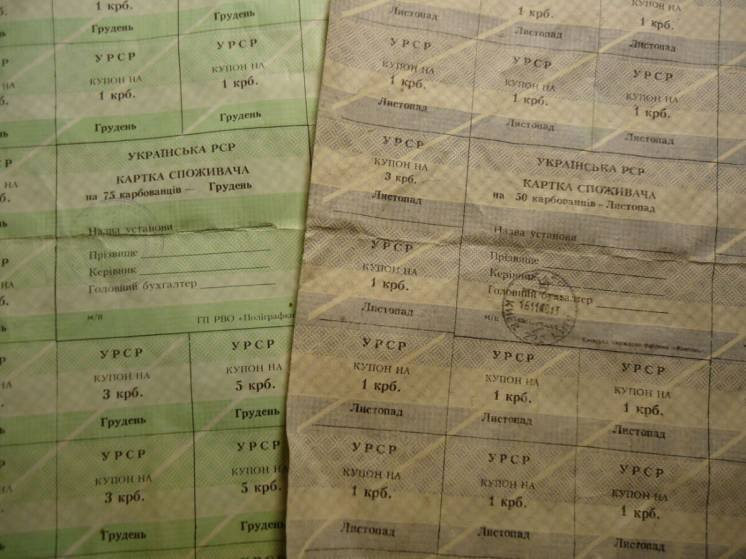 1 крб.
Грудень
Грудень
УРСР
КУПОН НА
1 крб.
Грудень
УРСР
КУПОН НА
1 крб.
Грудень
УКРАЇНСЬКА РСР
КАРТКА СПОЖИВАЧА
на 75 карбованців — Грудень
Назва установи
Прізвище
Керівник
Головний бухгалтер
м/п
ГП РВО «Поліграфкн
УРСР
КУПОН НА
3 крб.
Грудень
УРСР
КУПОН НА
5 крб.
Грудень
УРСР
КУПОН НА
3 крб.
Грудень
УРСР
КУПОН НА
5 крб.
Грудень
Листопад
1 крб.
Листопад
КУПОН НА
1 крб.
Листопад
УРСР
КУПОН НА
1 крб.
Листопад
УРСР
КУПОН НА
1 крб.
Листопад
УРСР
КУПОН НА
1 крб.
Листопад
УРСР
КУПОН НА
3 крб.
Листопад
УРСР
КУПОН НА
1 крб.
Листопад
УКРАЇНСЬКА РСР
КАРТКА СПОЖИВАЧА
на 50 карбованців – Листопад
Назва установи
Прізвище
Керівник
Головний бухгалтер
м/п
УРСР
КУПОН НА
1 крб.
Листопад
УРСР
КУПОН НА
1 крб.
Листопад
УРСР
КУПОН НА
1 крб.
Листопад
УРСР
КУПОН НА
1 крб.
Листопад
УРСР
КУПОН НА
1 крб.
Листопад
УРСР
КУПОН НА
1 крб.
Листопад